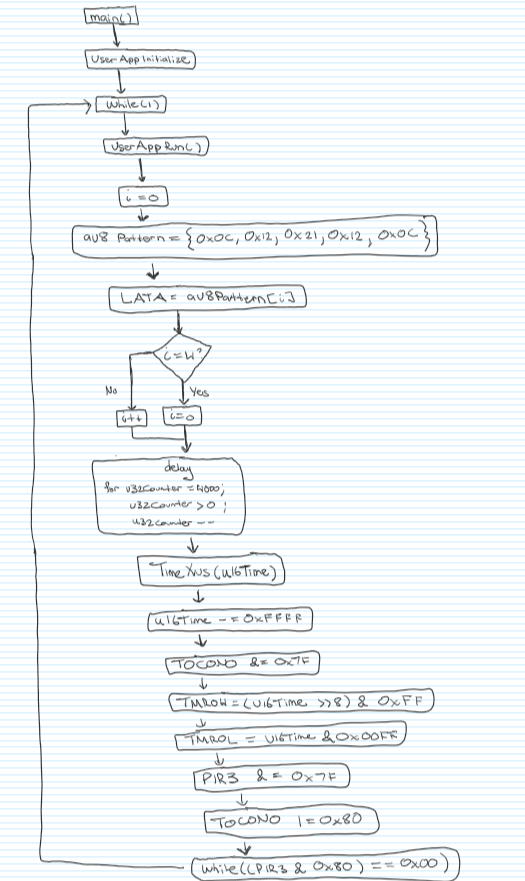 main()
UserAppInitialize
While(1)
UserAppRun()
i=0
au8 Pattern = {0x0C, 0x12, 0x21, 0x12, 0x0C}
LATA = au8Pattern[i]
i=4?
No
Yes
i++
i=0
delay
for u32Counter = 4000;
u32Counter > 0 ;
u32Counter --
TimeXus(u16Time)
u16Time -= 0xFFFF
T0CON0 &= 0x7F
TMR0H = (u16Time >>8) & 0xFF
TMR0L = u16Time & 0x00FF
PIR3 &= 0x7F
T0CON0 |= 0x80
While((PIR3 & 0x80) == 0x00)